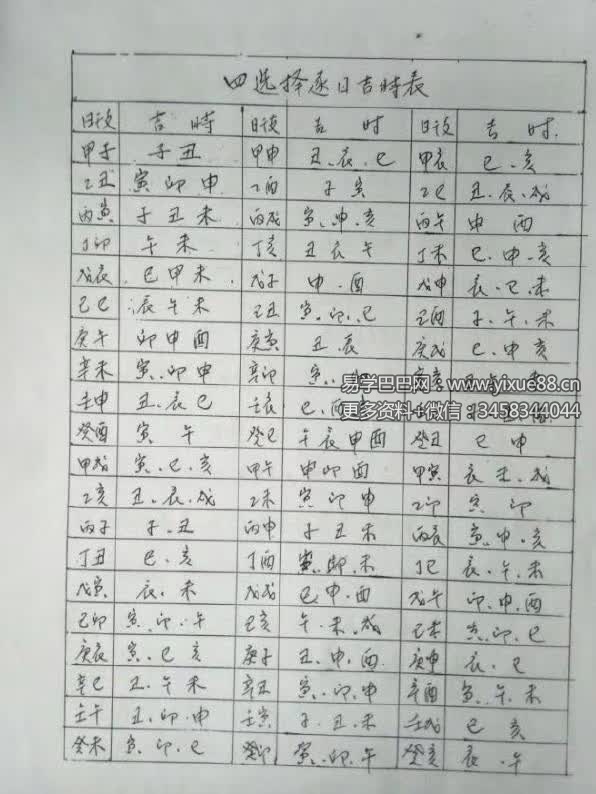 四选择逐日吉時表
日设 吉 時 日设 吉 时 日设 吉 时
甲子 子丑 甲申 丑、辰、巳 甲辰 巳、亥
乙丑 寅卯申 乙酉 子寅 乙巳 丑、辰、戍
丙寅 子丑未 丙戍 寅、申、亥 丙午 申 酉
丁卯 午未 丁亥 丑辰午 丁未 巳、申、亥
戊辰 巳甲未 戊子 申、酉 戊申 辰、巳、未
己巳 辰午未 己丑 寅、卯、巳 己酉 子、午、未
庚午 卯申酉 庚寅 丑、辰 庚戍 巳、申亥
辛未 寅、卯申 辛卯 寅、
易学巴巴网，www.yixue88.cn
壬申 丑、辰巳 壬辰 巳、
更多资料+微信：13458344044
癸酉 寅 午 癸巳 午辰申酉 癸丑 巳 申
甲戍 寅、巳、亥 甲午 申卯酉 甲寅 辰丑、戍
乙亥 丑、辰、戍 乙未 寅卯申 乙卯 寅、卯
丙子 子、丑 丙申 子丑未 丙辰 寅、申、亥
丁丑 巳、亥 丁酉 寅、卯、未 丁巳 辰、午、未
戊寅 辰、未 戊戍 巳、申、酉 戊午 卯、申、酉
己卯 寅、卯、午 己亥 午、未、戍 己未 寅、卯、巳
庚辰 寅、巳亥 庚子 丑、申、酉 庚申 辰、巳
辛巳 丑、午未 辛丑 寅、卯、申 辛酉 寅、午、未
壬午 丑、卯、申 壬寅 子、丑、未 壬戍 巳 亥
癸未 寅、卯、巳 癸卯 寅、卯、午 癸亥 辰、午